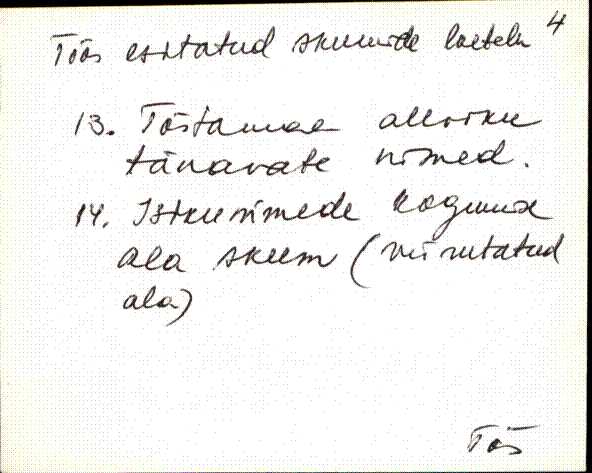 4
Töös esitatud skeemide loetelu
13. Tõstamaa alleviku
tänavate nimed.
14. Isikunimede kogumise
ala skeem (viirutatud
ala)
Tõs